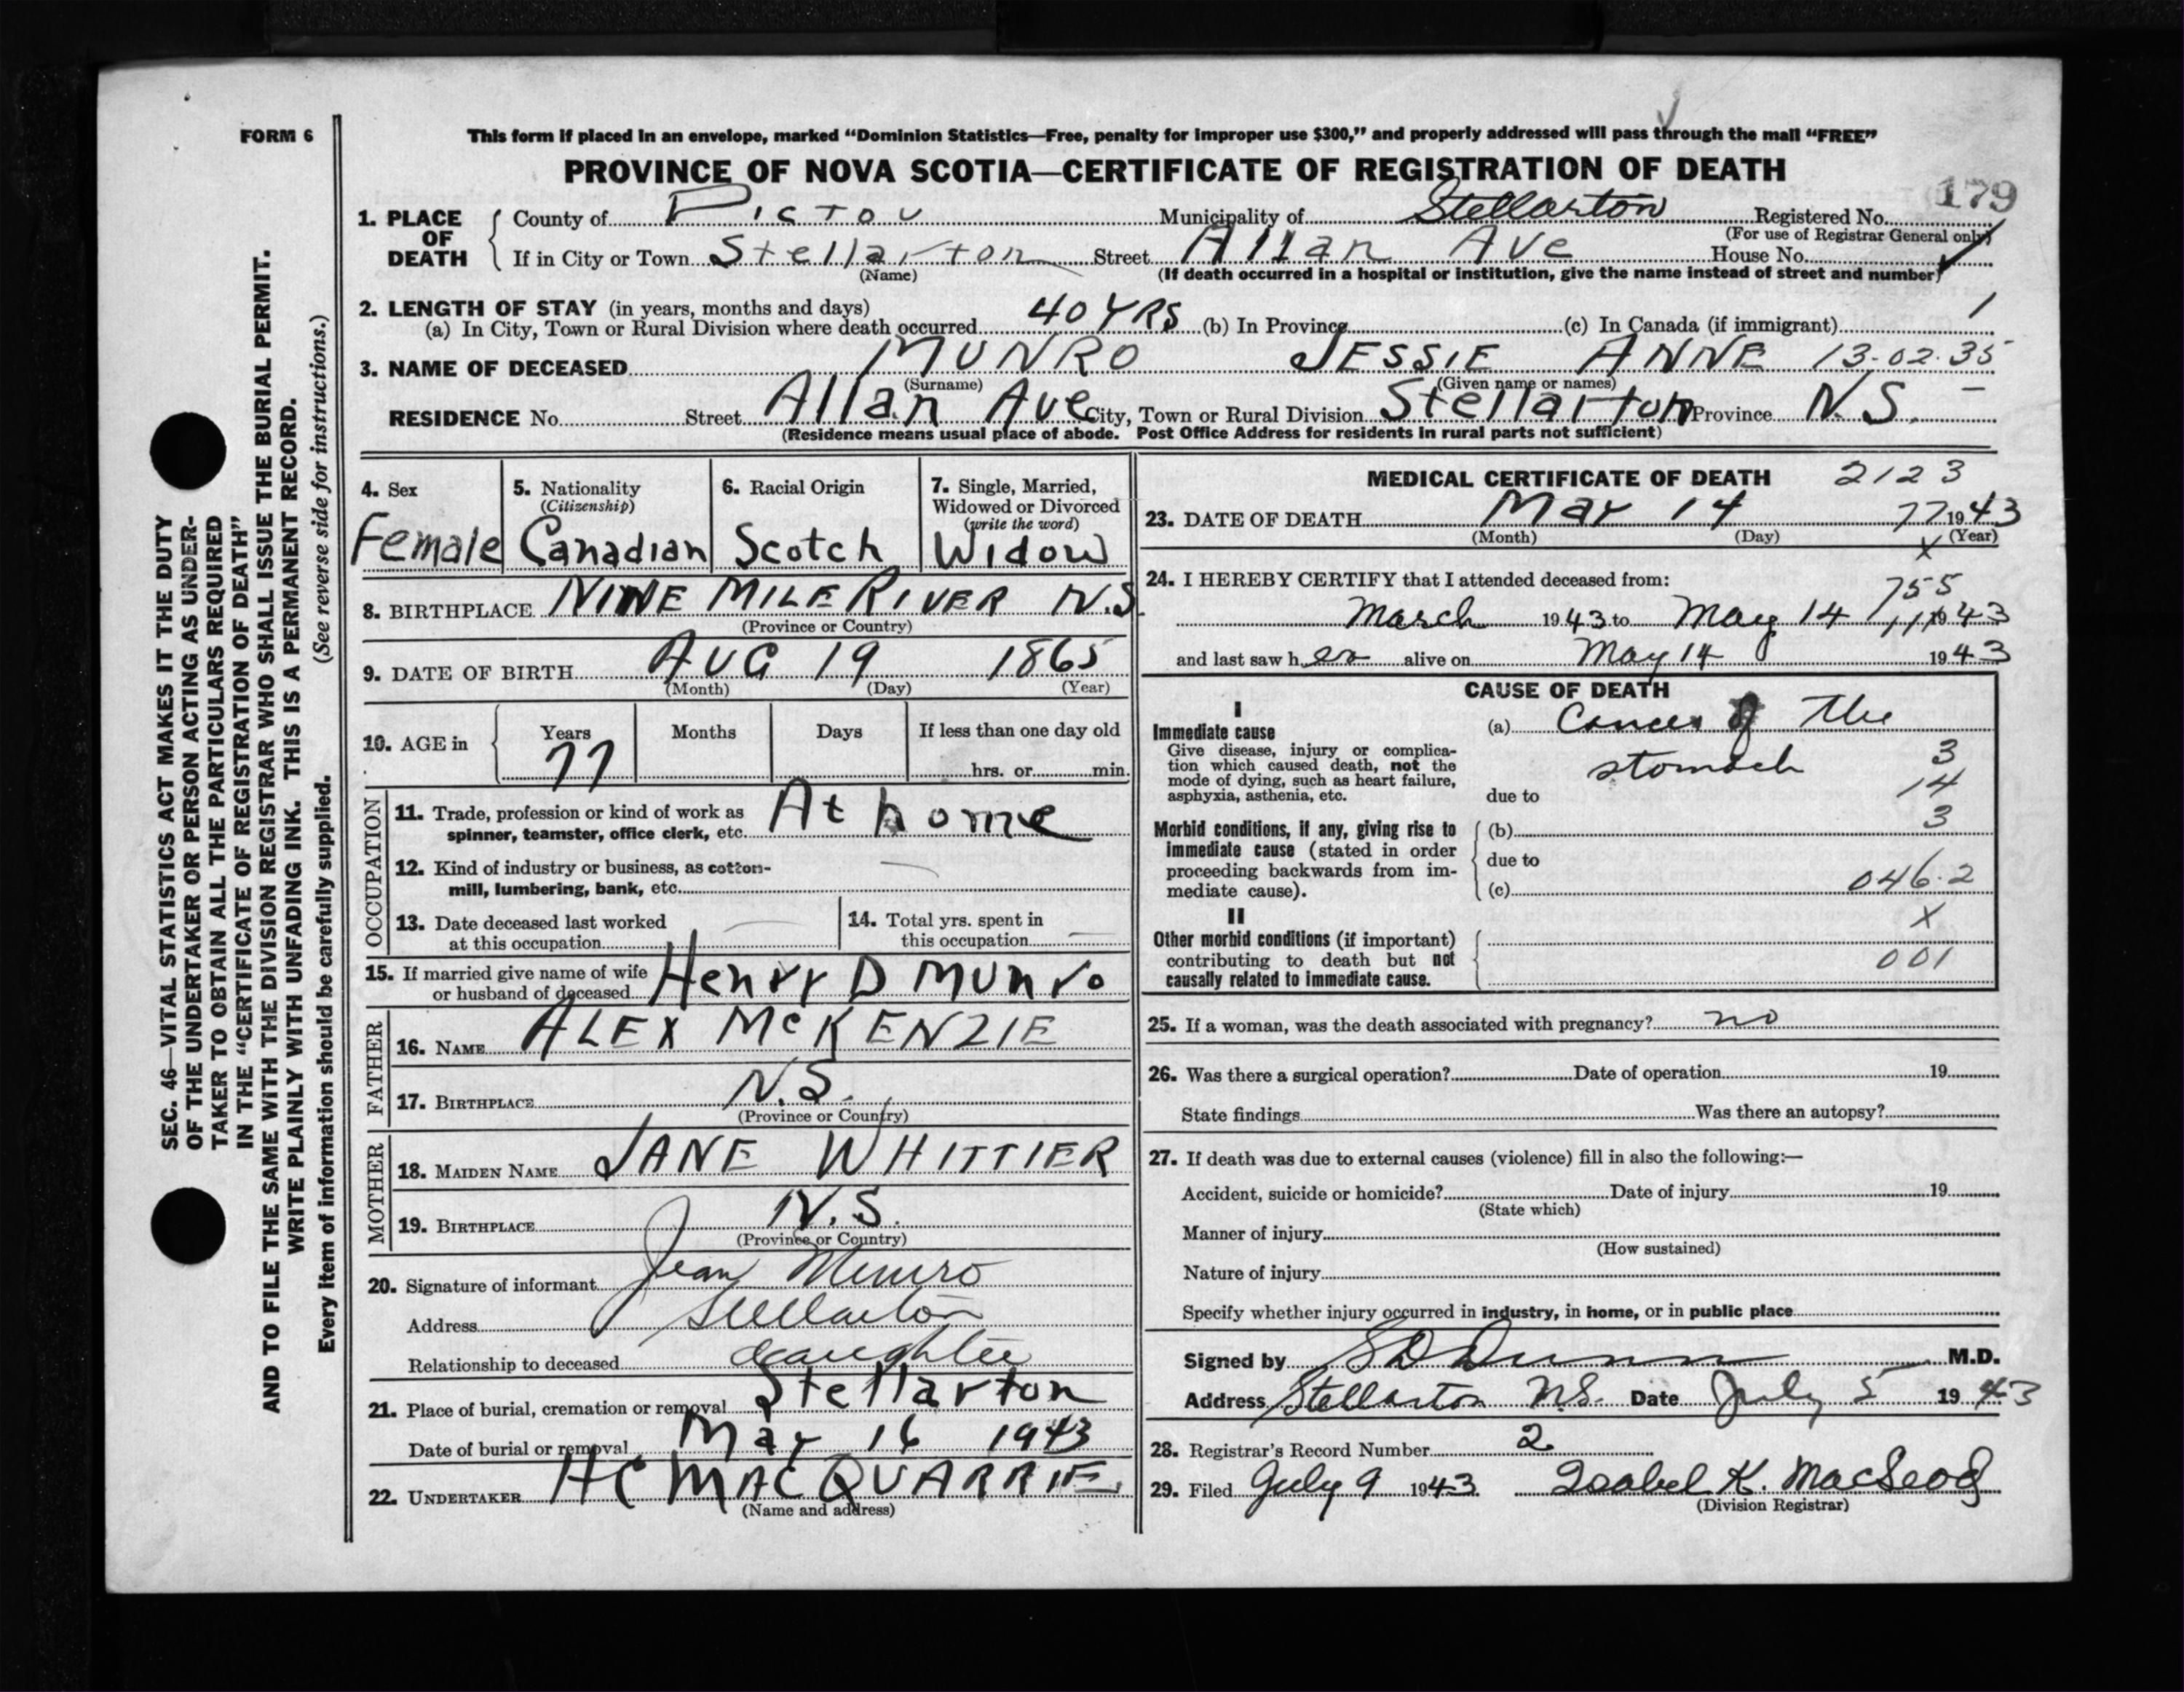 FORM 6
This form if placed in an envelope, marked “Dominion Statistics—Free, penalty for improper use $300,” and properly addressed will pass through the mail “FREE”
PROVINCE OF NOVA SCOTIA—CERTIFICATE OF REGISTRATION OF DEATH
179
1. PLACE OF DEATH
County of Pictou Municipality of Stellarton Registered No.
(For use of Registrar General only)
If in City or Town Stellarton Street Allan Ave House No.
(Name) (If death occurred in a hospital or institution, give the name instead of street and number)
2. LENGTH OF STAY (in years, months and days)
(a) In City, Town or Rural Division where death occurred 40 YRS (b) In Province (c) In Canada (if immigrant) 1
3. NAME OF DECEASED MUNRO JESSIE ANNE 13-02-35
(Surname) (Given name or names)
RESIDENCE No. Street Allan Ave City, Town or Rural Division Stellarton Province N.S.
(Residence means usual place of abode. Post Office Address for residents in rural parts not sufficient)
4. Sex
Female
5. Nationality
(Citizenship)
Canadian
6. Racial Origin
Scotch
7. Single, Married,
Widowed or Divorced
(write the word)
Widow
8. BIRTHPLACE NINE MILE RIVER N.S.
(Province or Country)
9. DATE OF BIRTH AUG 19 1865
(Month) (Day) (Year)
10. AGE in
Years Months Days If less than one day old
77 hrs. or min.
OCCUPATION
11. Trade, profession or kind of work as
spinner, teamster, office clerk, etc. At home
12. Kind of industry or business, as cotton-
mill, lumbering, bank, etc.
13. Date deceased last worked
at this occupation
14. Total yrs. spent in
this occupation
15. If married give name of wife
or husband of deceased Henry D Munro
FATHER
16. NAME ALEX McKENZIE
17. BIRTHPLACE N.S.
(Province or Country)
MOTHER
18. MAIDEN NAME JANE WHITTIER
19. BIRTHPLACE N.S.
(Province or Country)
20. Signature of informant Jean Munro
Address Stellarton
Relationship to deceased daughter
21. Place of burial, cremation or removal Stellarton
Date of burial or removal May 16 1943
22. UNDERTAKER HC MACQUARRIE
(Name and address)
MEDICAL CERTIFICATE OF DEATH 2123
23. DATE OF DEATH May 14 77 1943
(Month) (Day) (Year)
X
24. I HEREBY CERTIFY that I attended deceased from:
755
March 1943 to May 14 1943
and last saw her alive on May 14 1943
CAUSE OF DEATH
I
Immediate cause
Give disease, injury or complica-
tion which caused death, not the
mode of dying, such as heart failure,
asphyxia, asthenia, etc.
(a) Cancer of the
stomach 3
due to 14
Morbid conditions, if any, giving rise to
immediate cause (stated in order
proceeding backwards from im-
mediate cause).
(b) 3
due to
(c) 046.2
II
Other morbid conditions (if important)
contributing to death but not
causally related to immediate cause.
X
001
25. If a woman, was the death associated with pregnancy? no
26. Was there a surgical operation? Date of operation 19
State findings Was there an autopsy?
27. If death was due to external causes (violence) fill in also the following:—
Accident, suicide or homicide? Date of injury 19
(State which)
Manner of injury
(How sustained)
Nature of injury
Specify whether injury occurred in industry, in home, or in public place
Signed by S D Dunn M.D.
Address Stellarton N.S. Date July 5 1943
28. Registrar's Record Number 2
29. Filed July 9 1943 Isabel K. MacLeod
(Division Registrar)
SEC. 46—VITAL STATISTICS ACT MAKES IT THE DUTY
OF THE UNDERTAKER OR PERSON ACTING AS UNDER-
TAKER TO OBTAIN ALL THE PARTICULARS REQUIRED
IN THE “CERTIFICATE OF REGISTRATION OF DEATH”
AND TO FILE THE SAME WITH THE DIVISION REGISTRAR WHO SHALL ISSUE THE BURIAL PERMIT.
WRITE PLAINLY WITH UNFADING INK. THIS IS A PERMANENT RECORD.
Every item of information should be carefully supplied. (See reverse side for instructions.)